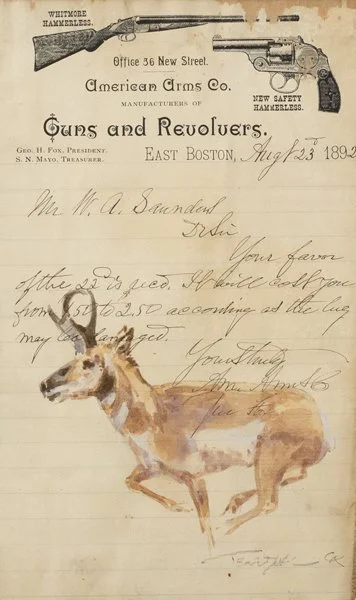 WHITMORE
HAMMERLESS.
Office 36 New Street.
American Arms Co.
MANUFACTURERS OF
NEW SAFETY
HAMMERLESS.
Guns and Revolvers.
GEO. H. FOX, PRESIDENT.
S. N. MAYO, TREASURER.
EAST BOSTON, Augt 23d 1892
Mr. W. A. Saunders
Dr Sir
Your favor
of the 22d is recd. It will cost you
from 1.50 to 2.50 according as the lug
may be damaged.
Yours truly
Am. Arms Co
per Fox